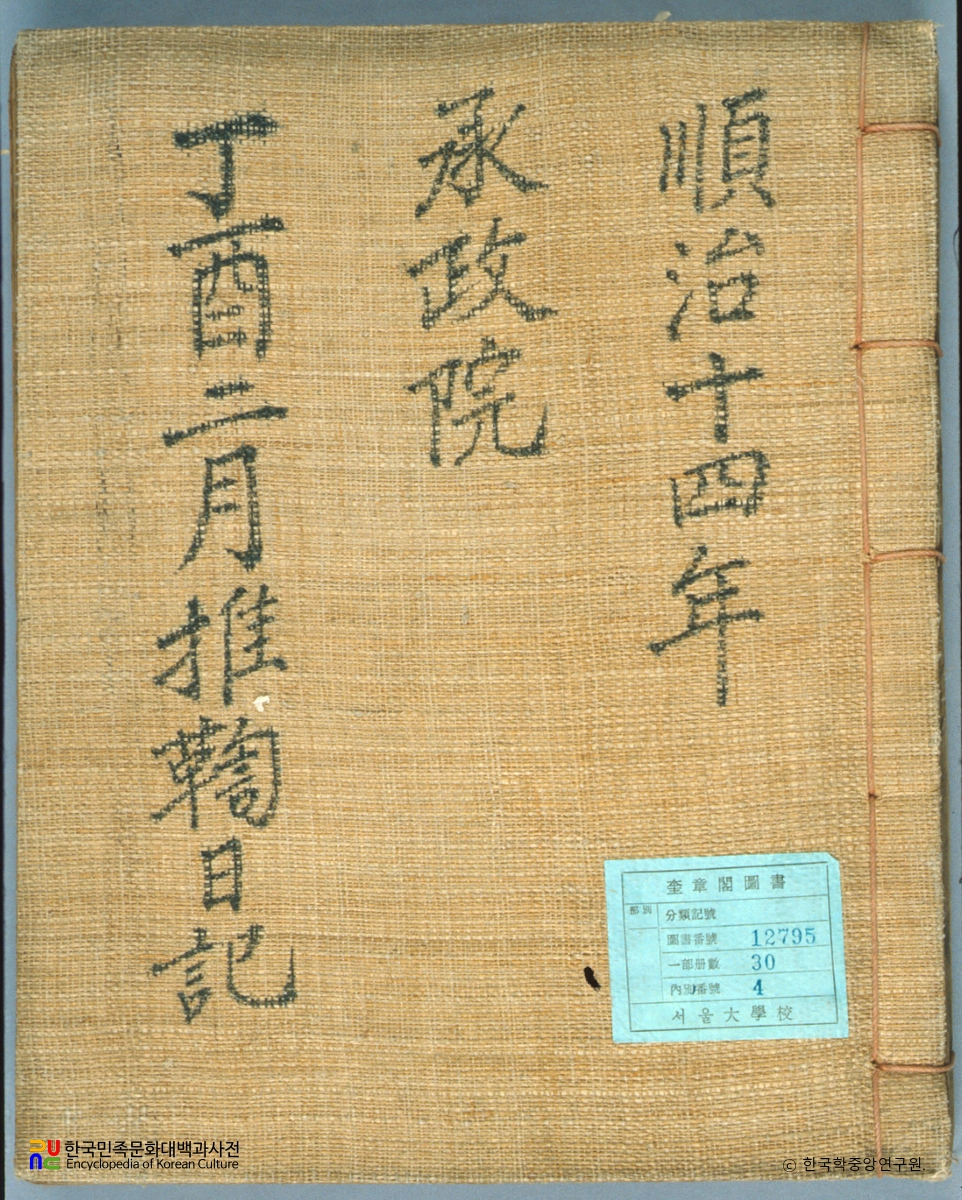 順治十四年
承政院
丁酉二月推鞫日記
奎章閣圖書
部別
分類記號
圖書番號 12795
一部册數 30
內別番號 4
서울大學校
한국민족문화대백과사전
Encyclopedia of Korean Culture
© 한국학중앙연구원